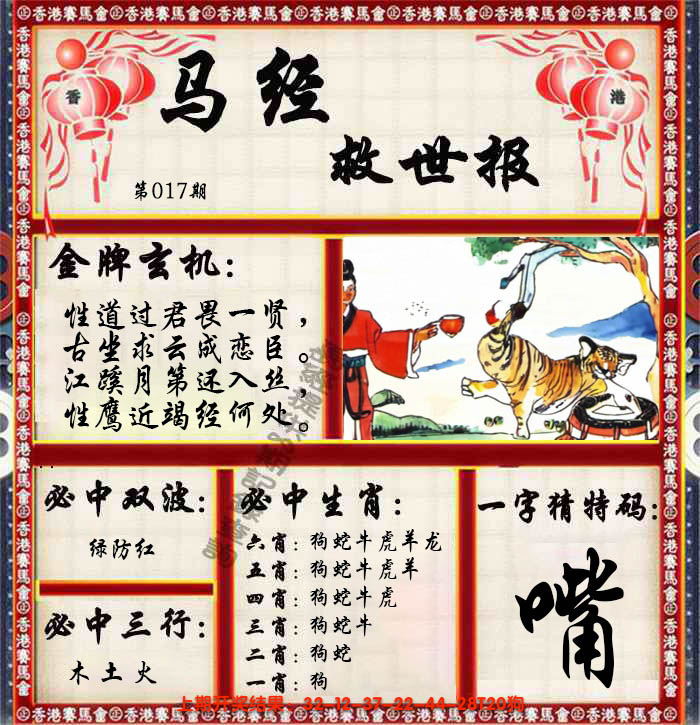 香港賽馬會
香
港
马经
救世报
第017期
金牌玄机：
性道过君畏一贤，
古坐求云成恋臣。
江蹊月第还入丝，
性鹰近竭经何处。
必中双波：
绿防红
必中三行：
木土火
必中生肖：
六肖：狗蛇牛虎羊龙
五肖：狗蛇牛虎羊
四肖：狗蛇牛虎
三肖：狗蛇牛
二肖：狗蛇
一肖：狗
一字猜特码：
嘴
上期开奖结果：32-12-37-22-44-28T20狗